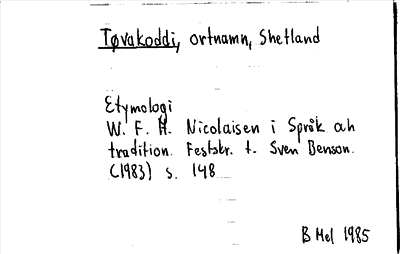 Tøvakoddi, ortnamn, Shetland
Etymologi
W. F. H. Nicolaisen i Språk och
tradition. Festskr. t. Sven Benson.
(1983) s. 148
B Mel 1985